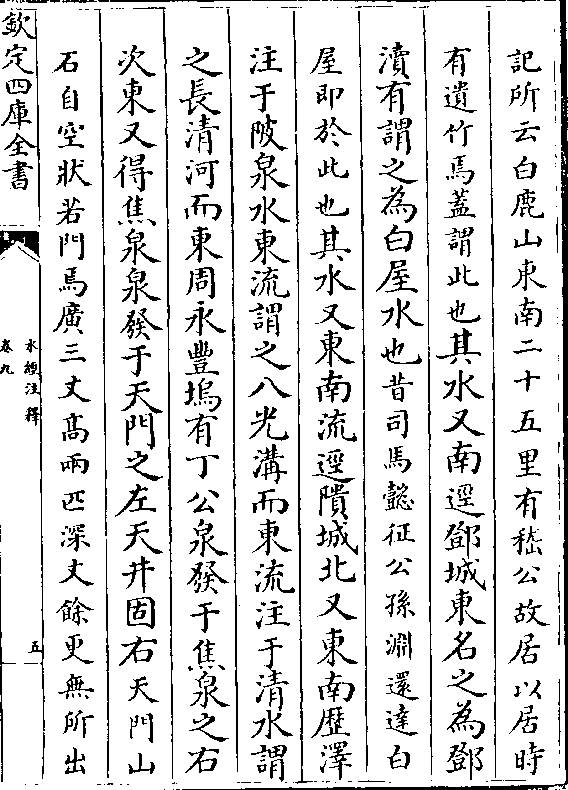 記所云白鹿山東南二十五里有嵇公故居以居時
有遺竹焉蓋謂此也其水又南逕鄧城東名之為鄧
瀆有謂之為白屋水也昔司馬懿征公孫淵還達白
屋即於此也其水又東南流逕隤城北又東南歷澤
注于陂泉水東流謂之八光溝而東流注于清水謂
之長清河而東周永豐塢有丁公泉發于焦泉之右
次東又得焦泉泉發于天門之左天井固右天門山
石自空狀若門焉廣三丈高兩匹深丈餘更無所出
欽定四庫全書
水經注釋
卷九
五